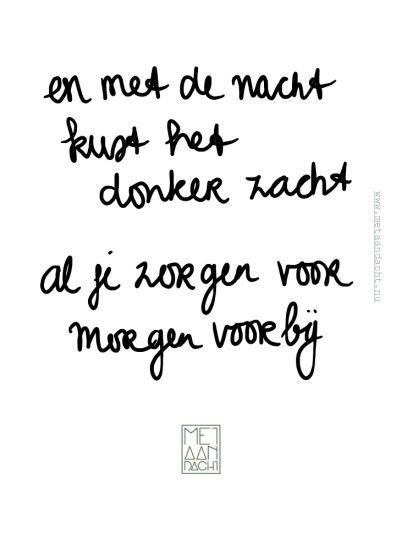 en met de nacht
kust het
donker zacht
al je zorgen voor
morgen voorbij
www.metaandacht.nu
MET
AAN
DACHT